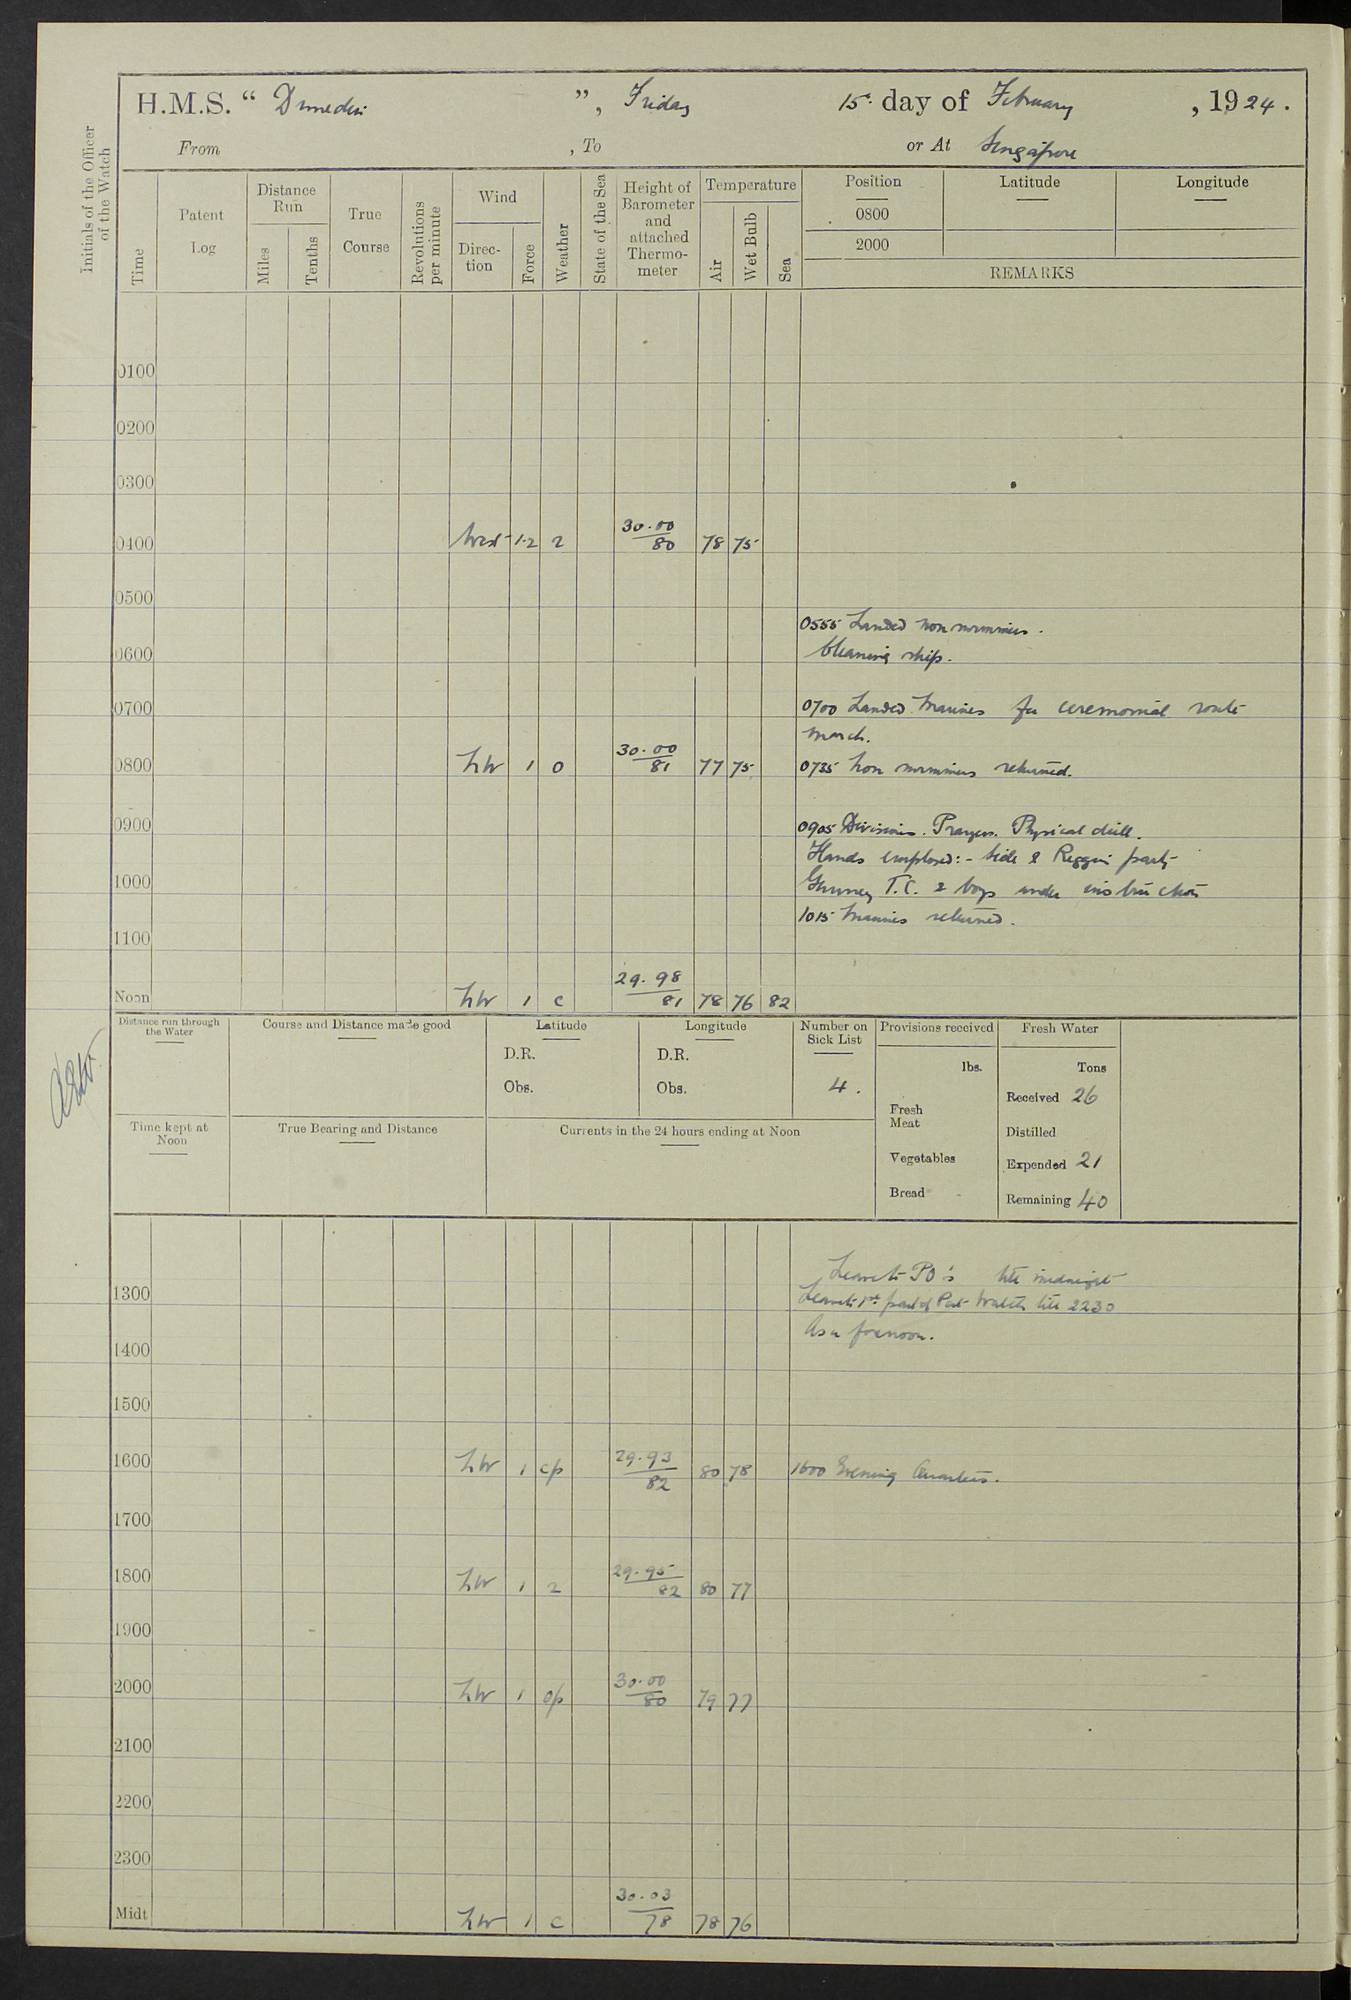 H.M.S. “ Dunedin ”, Friday 15th day of February, 1924.
From , To or At Singapore
Initials of the Officer of the Watch
Time
Patent Log
Distance Run
Miles
Tenths
True Course
Revolutions per minute
Wind
Direc-tion
Force
Weather
State of the Sea
Height of Barometer and attached Thermo-meter
Temperature
Air
Wet Bulb
Sea
Position Latitude Longitude
0800
2000
REMARKS
0100
0200
0300
0400 West 1.2 30.00 / 80 78 75
0500
0555 Landed non swimmers.
0600 Cleaning ship.
0700 0700 Landed Marines for ceremonial route
march.
0800 NW 1 o 30.00 / 81 77 75 0735 Non swimmers returned.
0900 0905 Divisions. Prayers. Physical drill.
Hands employed:- Side & Rigging party
1000 Gunnery T.C. & boys under instruction
1015 Marines returned.
1100
Noon NW 1 c 29.98 / 81 78 76 82
Distance run through the Water
Course and Distance made good
Latitude
D.R.
Obs.
Longitude
D.R.
Obs.
Number on Sick List
4.
Provisions received
lbs.
Fresh Meat
Vegetables
Bread
Fresh Water
Tons
Received 26
Distilled
Expended 21
Remaining 40
Time kept at Noon
True Bearing and Distance
Currents in the 24 hours ending at Noon
Leave to PO's till midnight
1300 Leave to 1st part of Port Watch till 2230
As in forenoon.
1400
1500
1600 NW 1 cp 29.93 / 82 80 78 1600 Evening Quarters.
1700
1800 NW 1 29.95 / 82 80 77
1900
2000 NW 1 op 30.00 / 80 79 77
2100
2200
2300
Midt NW 1 c 30.03 / 78 78 76